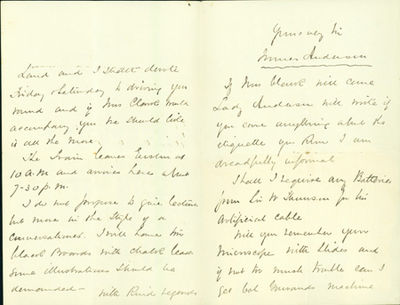 Land and I shall devote
Friday & Saturday to driving you
round and if Mrs Clark will
accompany you we should like
it all the more.
The Train leaves Euston at
10 a.m and arrives here about
7-30 p.m.
I do not propose to give lecture
but more in the style of a
conversazione. I will have two
black Boards with chalk
some illustrations should be
demanded — With Kind regards
Yours very
James Anderson
If Mrs Clark will come
Lady Anderson will write if
you care anything about the
etiquette you Know I am
dreadfully informal
Shall I require any Batteries
from Sir W Thomson for his
Artificial cable
Will you remember your
Microscope with Slides and
if not too much trouble can I
get machine